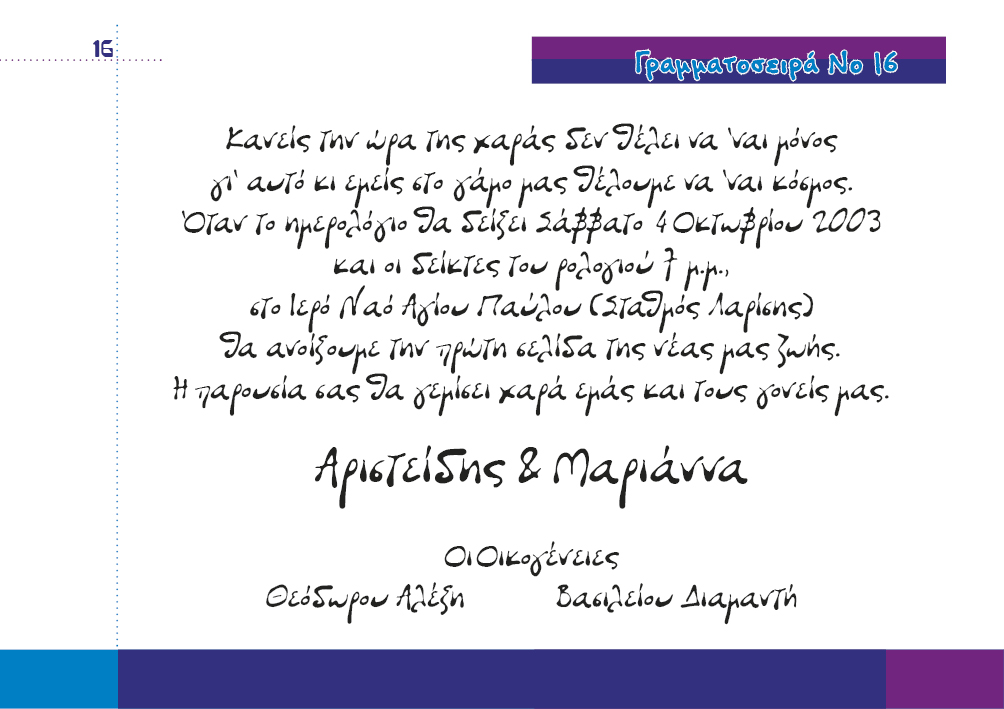 16
Γραμματοσειρά Νο 16
Κανείς την ώρα της χαράς δεν θέλει να 'ναι μόνος
γι' αυτό κι εμείς στο γάμο μας θέλουμε να 'ναι κόσμος.
Όταν το ημερολόγιο θα δείξει Σάββατο 4 Οκτωβρίου 2003
και οι δείκτες του ρολογιού 7 μ.μ.,
στο Ιερό Ναό Αγίου Παύλου (Σταθμός Λαρίσης)
θα ανοίξουμε την πρώτη σελίδα της νέας μας ζωής.
Η παρουσία σας θα γεμίσει χαρά εμάς και τους γονείς μας.
Αριστείδης & Μαριάννα
Οι Οικογένειες
Θεόδωρου Αλέξη Βασιλείου Διαμαντή